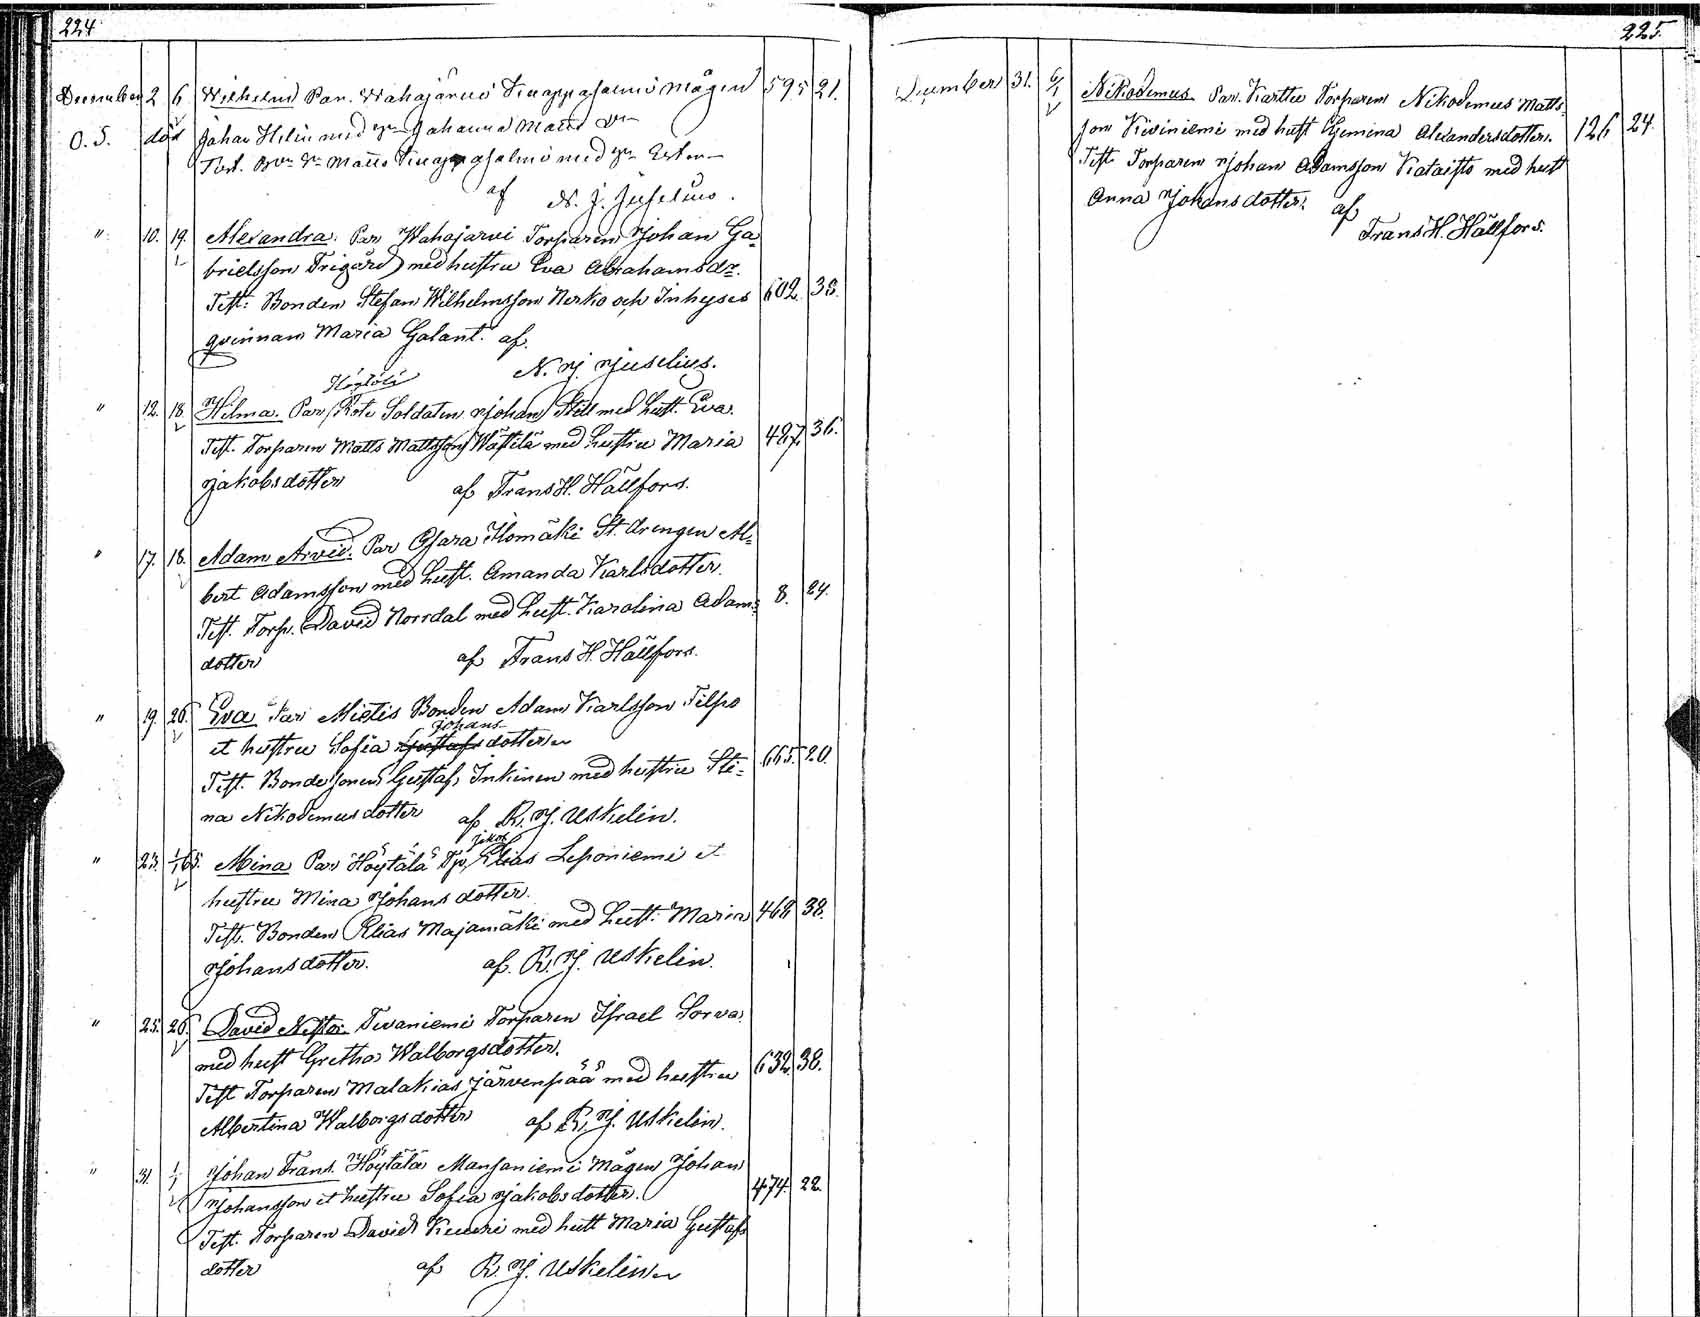 224
December 2 6 Wilhelm Par. Wahajärvi Knaappasalmi mågen 595 21.
O. S. död Johan Helin med h. Johanna Matts dr
Test. Matts Knaappasalmi med h. Ester
af N. J. Juselius.
" 10. 19. Alexandra. Par Wahajarvi Torparen Johan Ga-
brielsson Frigård med hustru Eva Abrahamsdr.
Test: Bonden Stefan Wilhelmsson Nerko och Inhyses 602. 33.
qvinnan Maria Galant. af.
N. J. Juselius.
Höytölä
" 12. 18. Hilma. Par Rote Soldaten Johan Still med Hust. Eva.
Test. Torparen Matts Mattsson Wästilä med Hustru Maria 487. 36.
Jakobsdotter af Frans H. Hällfors.
" 17. 18. Adam Arvid. Par Osara Ilomäki St. drengen Al-
bert Adamsson med Hust. Amanda Karlsdotter.
Test. Torp. David Norrdal med Hust. Karolina Adams- 8. 24.
dotter af Frans H. Hällfors.
" 19. 26. Eva Par Mietis Bonden Adam Karlsson Filpo
Johans
et hustru Sofia Gustafsdotter
Test. Bondesonen Gustaf Inkinen med hustru Sti- 665. 20.
na Nikodemusdotter af R. J. Uskelin.
Jakob
" 23. 1/1 65. Mina Par Höytälä Tp. Elias Leponiemi et
hustru Mina Johansdotter.
Test. Bonden Elias Majamäki med Hust. Maria 468 38.
Johansdotter. af. R. J. Uskelin.
" 25. 26. David Nestor Tevaniemi Torparen Israel Sorva
med hust Gretha Walborgsdotter.
Test Torparen Malakias Järvenpää med hustru 632. 38.
Albertina Walborgsdotter af R. J. Uskelin.
" 31. 1/1 Johan Frans. Höytälä Mansoniemi Mågen Johan
Johansson et hustru Sofia Jakobsdotter. 474. 22.
Test. Torparen David Keuski med hust Maria Gustafs
dotter af R. J. Uskelin
225.
December 31. 6/1 Nikodemus Par. Karttu Torparen Nikodemus Matts-
son Kiviniemi med hust Gemina Alexandersdotter. 126 24.
Test. Torparen Johan Adamsson Kataisto med hust
Anna Johansdotter. af
Frans H. Hällfors.